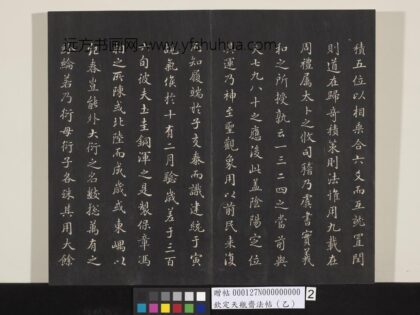 远方书画网 www.yfshuhua.com
積五位以相乘合六爻而互就置閏
則道在歸奇積策則法推用九載在
周禮屬太卜之攸司稽乃虞書實羲
和之所授執云一三二四之當前與
夫七九八十之應後此蓋陰陽定位
運乃神至聖觀象用以前民未復
知履端於子爻泰而識建統于寅
氣俟於十有二月驗歲差于三百
六旬彼夫土圭銅渾之是製保章馮
相之所陳或北陸而成歲或東嵎以
春豈能外大衍之名數總萬有之
綸若乃衍母衍子各殊其用大餘
贈帖 000127N000000000
欽定天瓶齋法帖(乙)
2